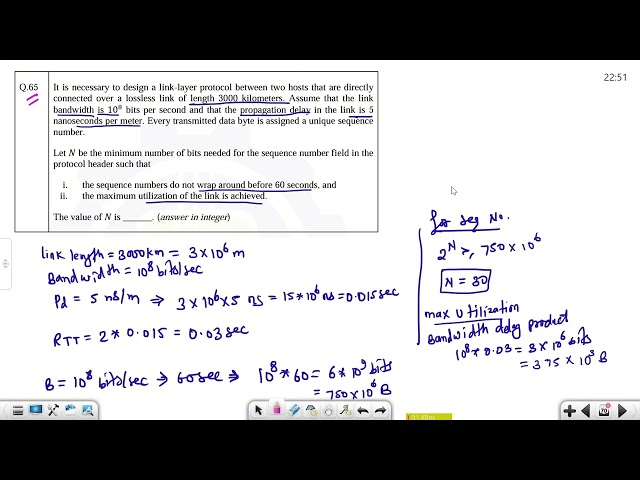 22:51
Q.65 It is necessary to design a link-layer protocol between two hosts that are directly
connected over a lossless link of length 3000 kilometers. Assume that the link
bandwidth is 10⁸ bits per second and that the propagation delay in the link is 5
nanoseconds per meter. Every transmitted data byte is assigned a unique sequence
number.
Let N be the minimum number of bits needed for the sequence number field in the
protocol header such that
i. the sequence numbers do not wrap around before 60 seconds, and
ii. the maximum utilization of the link is achieved.
The value of N is ______. (answer in integer)
link length = 3000km = 3 × 10⁶ m
Bandwidth = 10⁸ bits/sec
Pd = 5 ns/m ⇒ 3 × 10⁶ × 5 ns = 15 * 10⁶ ns = 0.015 sec
RTT = 2 * 0.015 = 0.03 sec
B = 10⁸ bits/sec ⇒ 60 sec ⇒ 10⁸ * 60 = 6 × 10⁹ bits
= 750 × 10⁶ B
for seq No.
2ᴺ >, 750 × 10⁶
N = 30
max utilization
Bandwidth delay product
10⁸ * 0.03 = 3 × 10⁶ bits
= 375 × 10³ B